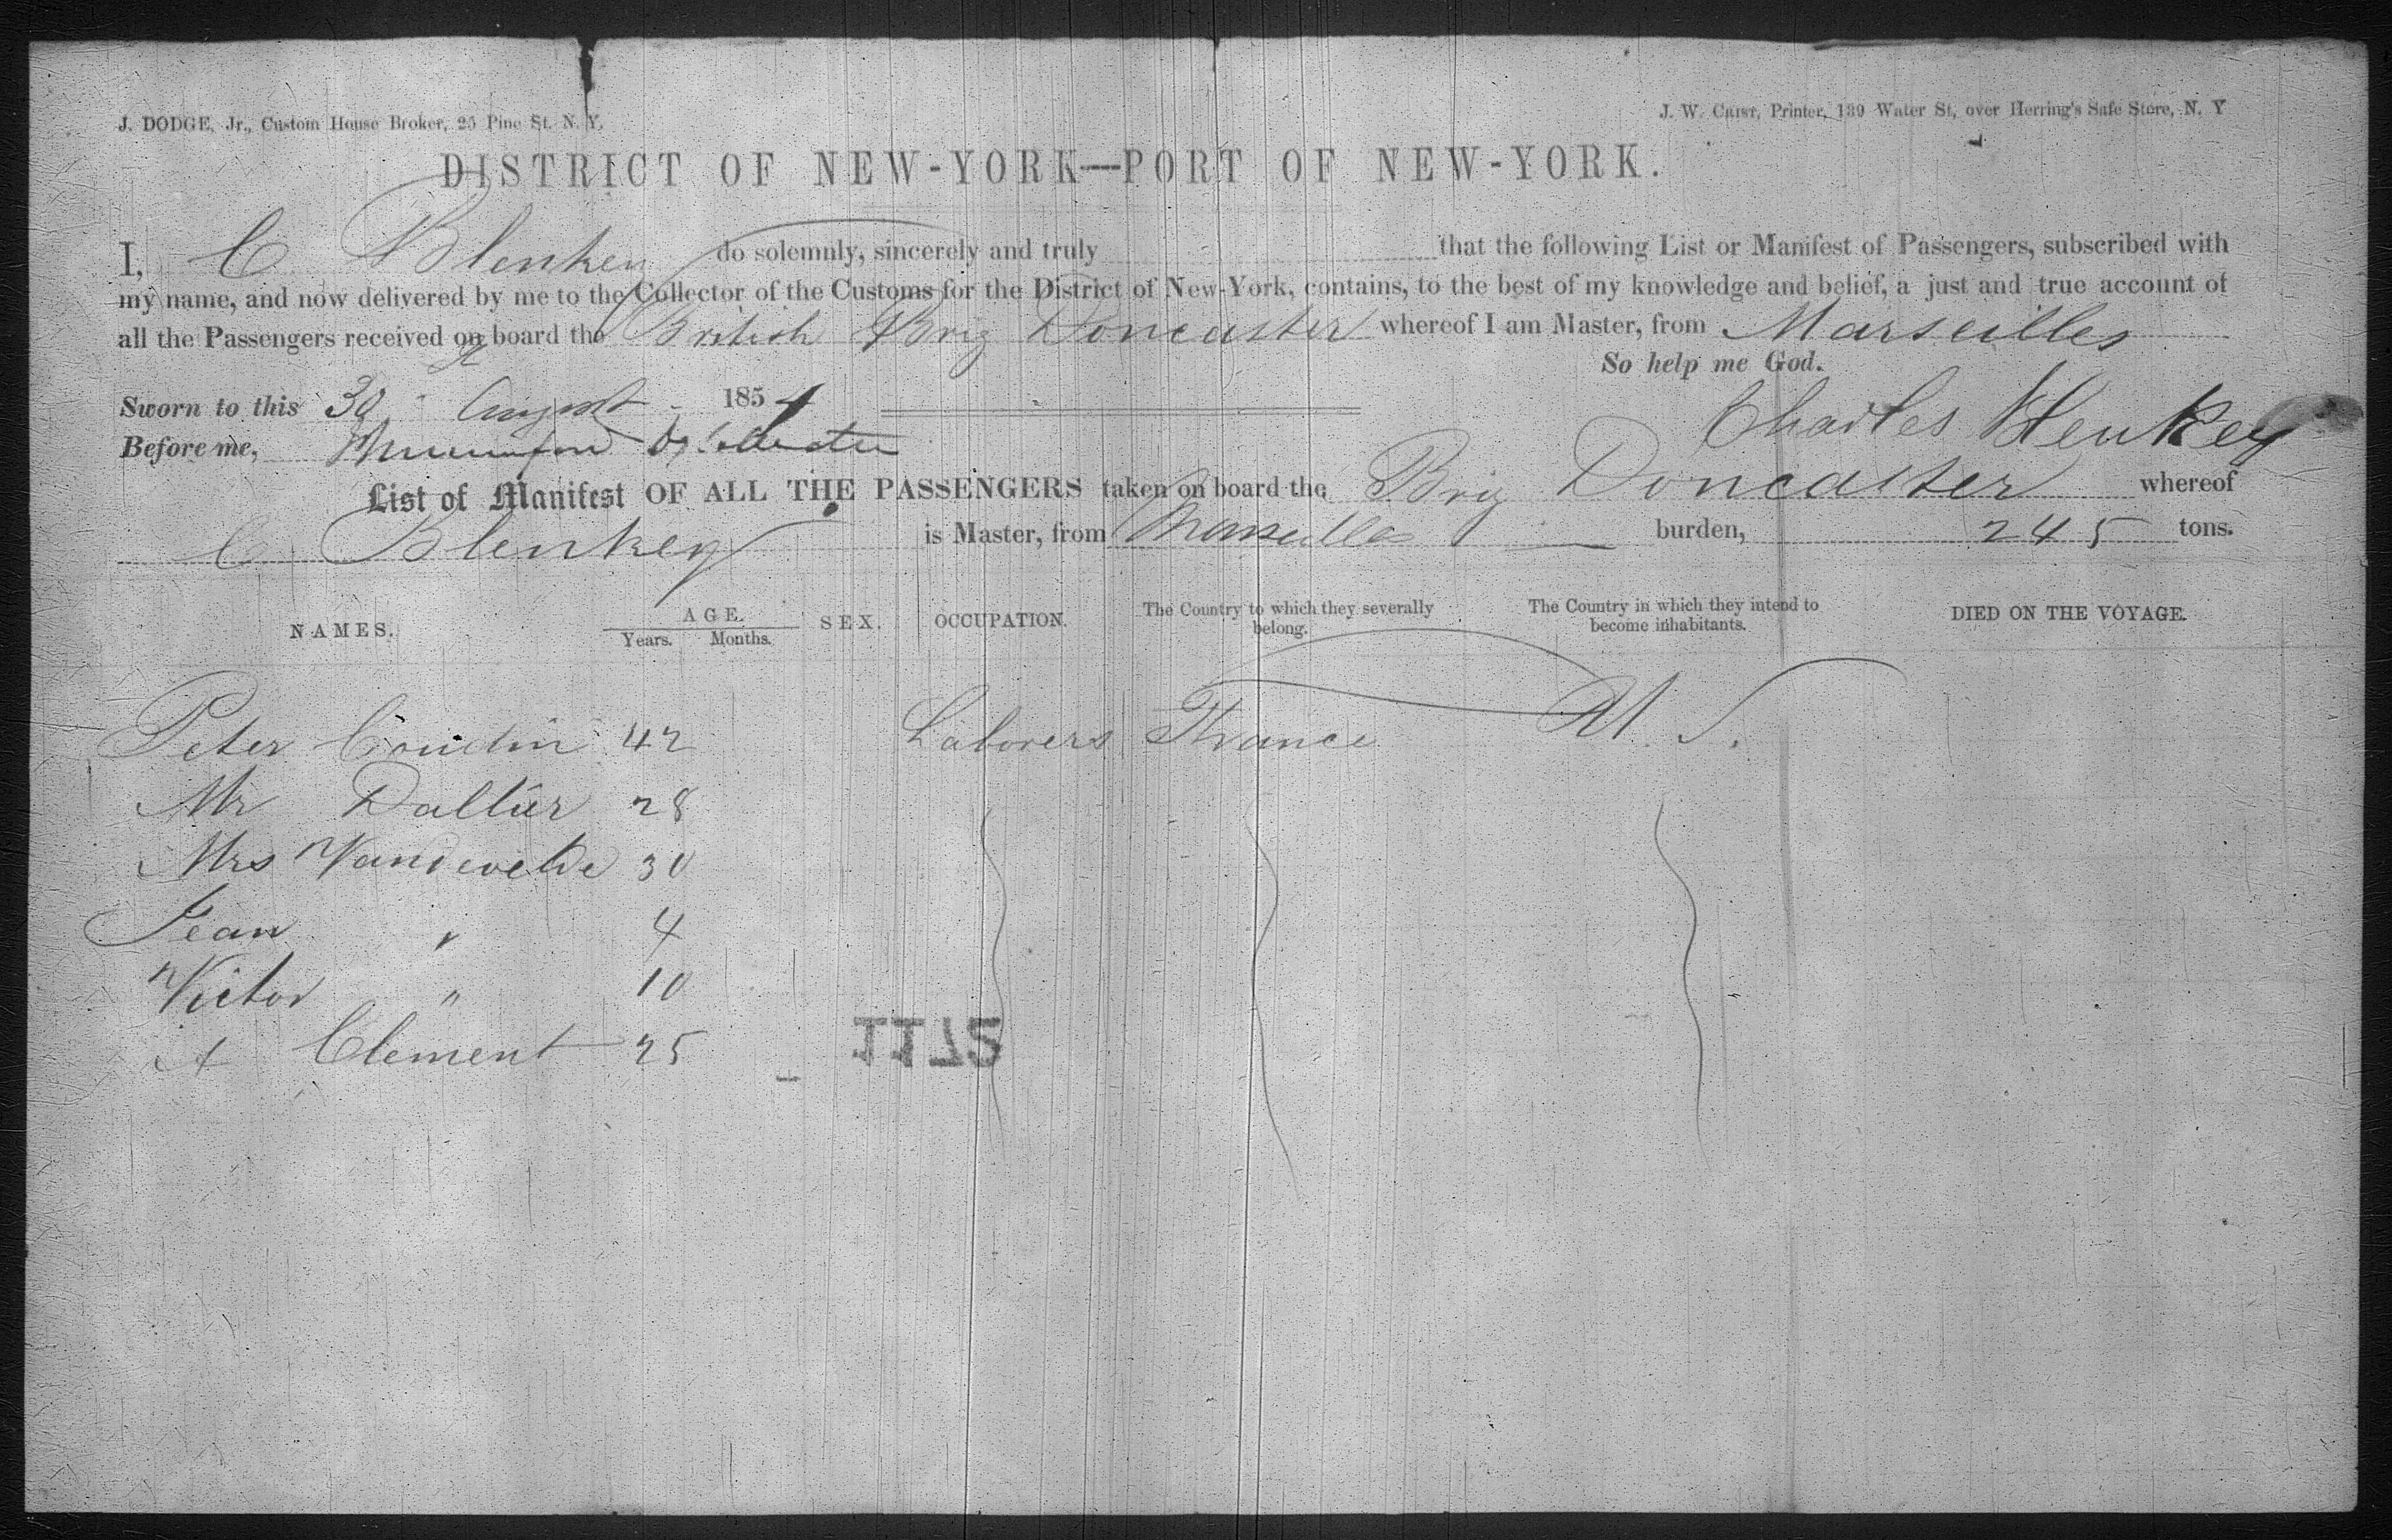 J. DODGE, Jr., Custom House Broker, 25 Pine St. N. Y.
J. W. Printer, 139 Water St, over Herring's Safe Store, N. Y
DISTRICT OF NEW-YORK—PORT OF NEW-YORK.
I, C Blenkey do solemnly, sincerely and truly that the following List or Manifest of Passengers, subscribed with
my name, and now delivered by me to the Collector of the Customs for the District of New-York, contains, to the best of my knowledge and belief, a just and true account of
all the Passengers received on board the British Brig Doncaster whereof I am Master, from Marseilles
So help me God.
Sworn to this 30 August 1854
Charles
Before me,
List of Manifest OF ALL THE PASSENGERS taken on board the Brig Doncaster whereof
C Blenkey is Master, from Marseilles burden, 245 tons.
NAMES. AGE. SEX. OCCUPATION. The Country to which they severally belong. The Country in which they intend to become inhabitants. DIED ON THE VOYAGE.
Years. Months.
Peter 42 Laborers France U. S.
Mr 28
Mrs Vandevelde 30
Jean " 4
Victor " 10
A Clement 25
1172